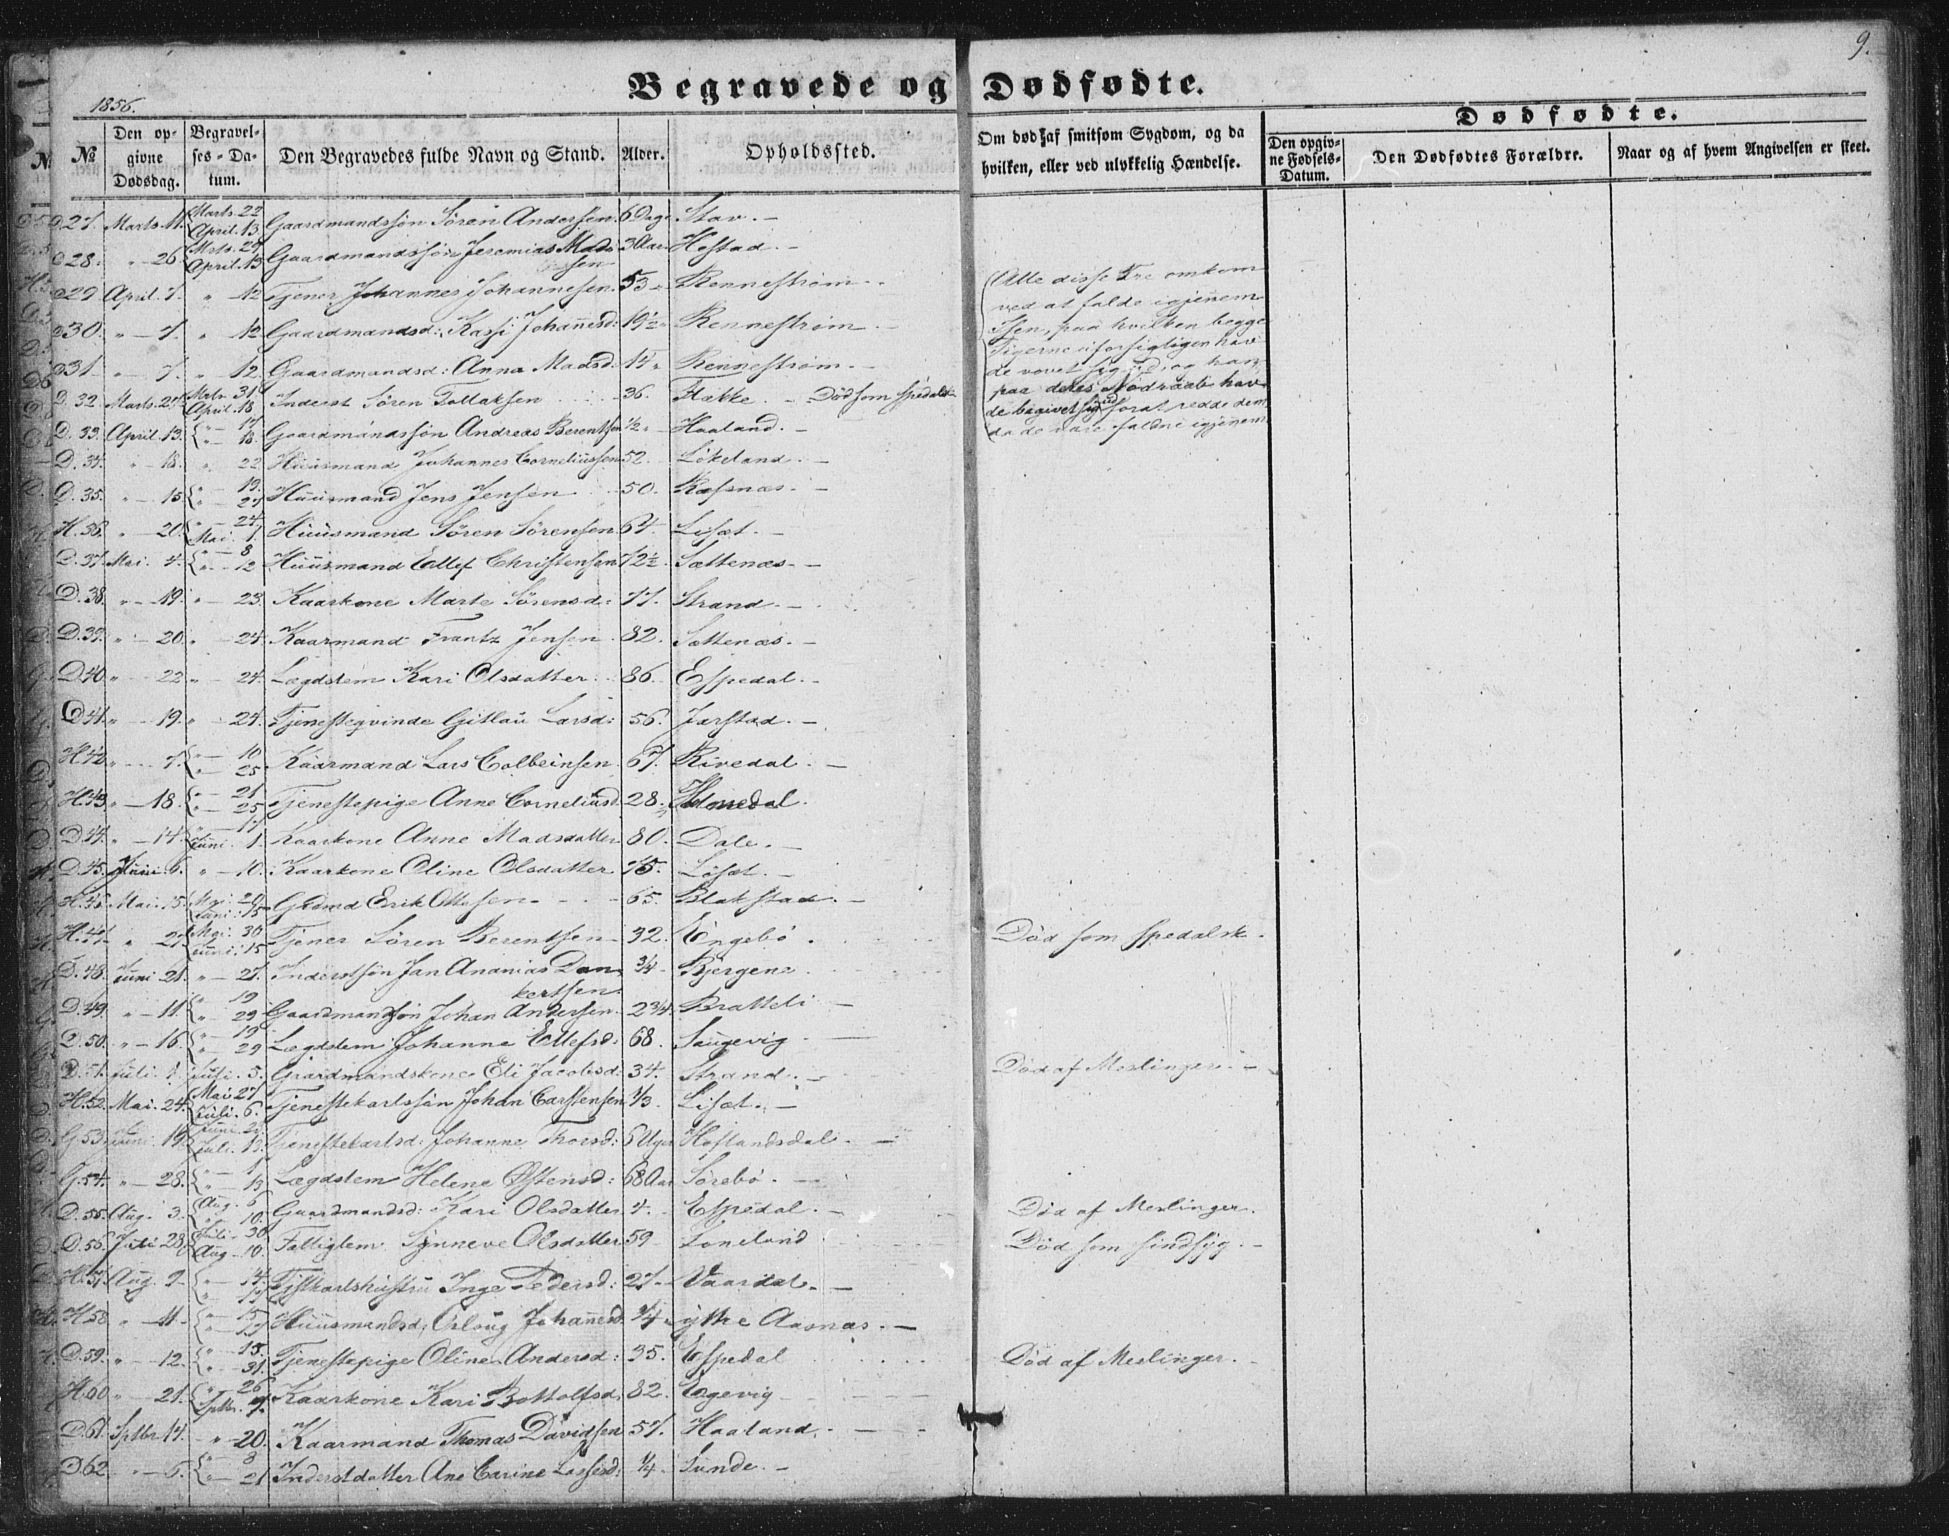 9.
Begravede og Dødfødte.
1856.
Dødfødte.
№
Den opgivne Dødsdag.
Begravelses-Datum.
Den Begravedes fulde Navn og Stand.
Alder.
Opholdssted.
Om død af smitsom Sygdom, og da hvilken, eller ved ulykkelig Hændelse.
Den opgivne Fødsels-Datum.
Den Dødfødtes Forældre.
Naar og af hvem Angivelsen er skeet.
27. Marts 11. Marts 22 April. 13 Gaardmandssøn Søren Andersen. 6 Dage Stav. -
28. " 26. Mrts. 29 April. 13 Gaardmandssøn Jeremias Madssen 3 Aar Hestad. -
29 April. 7. " 12 Tjener Johannes Johannesen. 53 " Rennestrøm -
(Alle disse Tre omkom
ved at falde igjennem
Isen, paa hvilken begge
Pigerne uforsigtigen hav
de vovet sig ud, og han
paa deres Nødraab hav
de begivet sig ud forat redde dem
da de vare faldne igjennem
30. " - 7. " 12 Gaardmandsd: Kari Johannesd: 19½ " Rennestrøm -
31. " - 7. " 12 Gaardmandsd: Anna Madsd: 14 " Rennestrøm. -
D. 32. Marts. 24. Mrts. 31 April. 18. Inderst Søren Tollaksen 36. Flekke. - Død som spedalsk
D. 33. April. 13. " - 17 " - 18. Gaardmandssøn Andreas Berentsen ½ " Haaland. -
D. 34. " - 18. " 22 Huusmand Johannes Corneliussen 52. Løkeland. -
D. 35. " - 15 " - 19. " - 27 Huusmand Jens Jensen 50. Ræfsnæs. -
H. 36. " - 20. " - 24. Mai. 1. Huusmand Søren Sørensen 64. Lisæt. -
D. 37. Mai. 4. " - 8 " - 12 Huusmand Ellef Christensen 72½. Sættenæs. -
D. 38. " - 19. " - 23. Kaarkone Marte Sørensd: 77. Strand. -
D. 39. " - 20. " - 24. Kaarmand Frantz Jensen. 82. Sættenæs. -
D. 40. " - 22. " - 24. Lægdslem Kari Olsdatter. 86. Espedal. -
D. 41. " - 19. " - 24. Tjenesteqvinde Gitlau Larsd: 56. Jarstad. -
H. 42. " - 7. " - 10 " - 25 Kaarmand Lars Colbeinsen. 67. Rivedal. -
H. 43. " - 18. " - 21 " - 25. Tjenestepige Anne Corneliusd. 28. Holmedal.
D. 44. " - 14. " - 17 Juni. 1. Kaarkone Anne Madsdatter 80. Dale. -
D. 45. Juni 6. " - 10. Kaarkone Oline Olsdatter 75. Løset. -
H. 46. Mai. 15. Mai. 20 Juni. 15 Gdmd Erik Ottesen. - 65. Blakstad. -
H. 47. " 27. Mai. 30 Juni. 15 Tjener Søren Berentsen 32. Engebø. Død som spedalsk.
D. 48. Juni 21. " - 27. Inderstsøn Jan Ananias Dankertsen. ¾ - Bjergene.
D. 49. " - 11. " 19 " 29 Gaardmandssøn Johan Andersen. 2¾ Bratteli -
D. 50. " - 16. " - 19 " - 29 Lægdslem Johanne Ellefsd: 68. Saugevig. -
D. 51. Juli 1. Juli. 5. Gaardmandskone Eli Jacobsd: 34. Strand. - Død af Meslinger. -
H. 52. Mai. 24. Mai 27 Juli. 6. Tjenestekarlssøn Johan Carstensen ⅓. Lisæt. -
G. 53. Juni 19. Juli. 13. Tjenestekarlsd: Johanne Thorsd: 6 Uger Hoflandsdal. -
G. 54. " - 28. " - 1 " - 13 Lægdslem Helene Østensd: 68 Aar Sørebø. -
D. 55. Aug. 3. Aug. 6 " 10. Gaardmandsd: Kari Olsdatter 4. Espedal. - Død af Meslinger.
D. 56. Juli 28. Juli. 30 Aug - 10. Fattiglem Synneve Olsdatter 59 Loneland Død som sindsyg. -
H. 57. Aug. 9. " - 14 " - 17 Tjstkarlshustru Inge Pedersd: 27. Vaardal. -
H. 58 " - 11. " - 15 " - 17 Huusmandsd: Orloug Johannesd. ¼ - ytre Aasnæs. -
D. 59. " - 12. " - 15. " - 31. Tjenestepige Oline Andersd: 35. Espedal Død af Meslinger. -
H. 60 " - 21. " - 26 Sptbr. 7. Kaarkone Kari Bottolfsd. 82. Engevig
D. 61. Sptbr 14. " - 20. Kaarmand Thomas Davidsen 57. Haaland. -
D. 62 " - 5. " - 8 " - 21 Inderstdatter Ane Carine Lassesd: ¼. Sunde. -